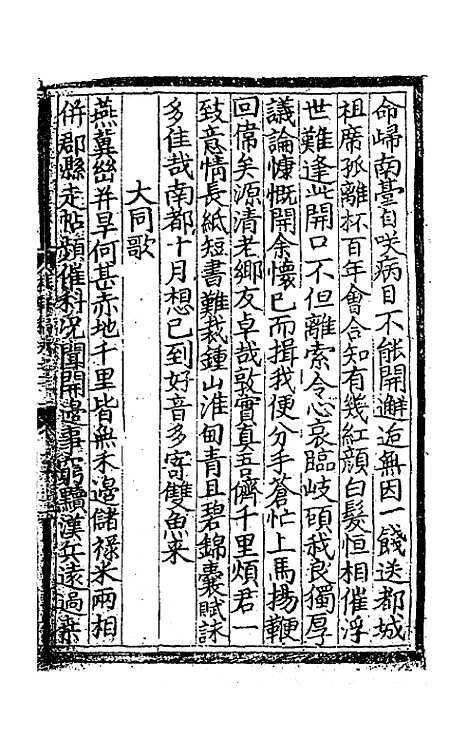 命歸南臺自咲病目不能開邂逅無因一餞送都城
祖席孤離杯百年會合知有幾紅顔白髮恒相催浮
世難逢此開口不但離索令心哀臨岐頭我良獨厚
議論慷慨開余懷已而揖我便分手蒼忙上馬揚鞭
回偹矣源清老鄉友卓哉敦實真吾儕千里煩君一
致意情長紙短書難裁鍾山淮甸青且碧錦囊賦詠
多佳哉南都十月想已到好音多寄雙魚来
大同歌
燕冀幽并旱何甚赤地千里皆無禾邊儲禄米兩相
併郡縣走帖頻催科况聞開邊事窮黷漢兵遠過